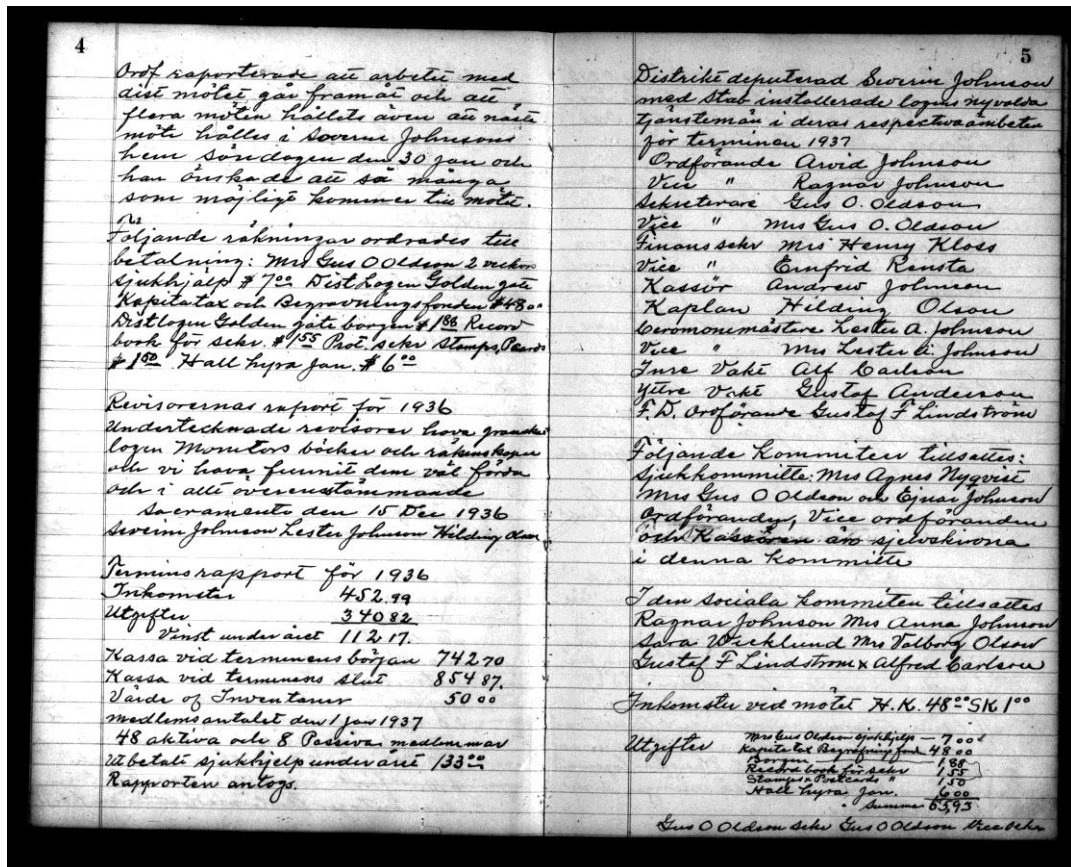 4
Ordf raporterade att arbetet med
dist mötet går framåt och att
flera möten hållets även att näste
möte hålles i Soverin Johnsons
hem Söndagen den 30 jan och
han önskade att så många
som möjligt kommer till mötet.
Följande räkningar ordrades till
betalning: Mrs Gus O Oldson 2 veckors
sjukhjälp $ 7.00 Dist Logen Golden gate
Kapitatax och Begravningsfonden $48 00
Distlogen Golden gate borgen $ 1.88 Record
book för sekr. $ 1.55 Prot. sekr Stamps, Pcards
$ 1.50. Hall hyra Jan. $ 6.00
Revisorernas raport för 1936
Undertecknade revisorer hava granskat
logen Monitors böcker och räkinskaper
och vi hava funnit dem väl förda
och i allt överensstämmande
Sacramento den 15 Dec 1936
Severin Johnson Lester Johnson Hilding Olson
Termins rapport för 1936
Inkomster 452.99
Utgifter 340 82
Vinst under året 112 17.
Kassa vid terminens början 742 70
Kassa vid terminens slut 854 87.
Värde of Inventarier 50 00
medlemsantalet den 1 Jan 1937
48 aktiva och 8 Passiva medlemmar
Utbetalt sjukhjelp under året 133.00
Rapporten antogs.
5
Distrikt deputerad Severin Johnson
med Stab installerade logens nyvalda
tjänstemän i deras respectiva ämbeten
för terminen 1937
Ordförande Arvid Johnson
Vice " Ragnar Johnson
Sekreterare Gus O. Oldson
Vice " Mrs Gus O. Oldson
Finans sekr Mrs Henry Kloss
Vice " Ernfrid Rensta
Kassör Andrew Johnson
Kaplan Hilding Olson
Ceromonemästare Lester A. Johnson
Vice " Mrs Lester A. Johnson
Inre Vakt Alf Carlson
Yttre Vakt Gustaf Anderson
F. D. Ordförande Gustaf F Lindström
Följande Kommiteer tillsattes:
Sjukkommitte: Mrs Agnes Nyqvist
Mrs Gus O Oldson och Ejnar Johnson
Ordföranden, Vice ordföranden
och Kassören äro sjelvskrivna
i denna kommitte
I den sociala kommiten tillsattes
Ragnar Johnson Mrs Anna Johnson
Sara Wicklund Mrs Valborg Olson
Gustaf F Lindstrom & Alfred Carlson
Inkomster vid mötet H.K. 48.00 SK 1.00
Utgifter Mrs Gus Oldson Sjukhjelp — 7 00
Kapitatax Begrafnings fond 48 00
Borgen 1.88
Record book för sekr 1.55
Stamps & Postcards " 1.50
Hall hyra Jan. 6.00
Summa 65,93
Gus O Oldson Sekr Gus O Oldson Vice Sekr